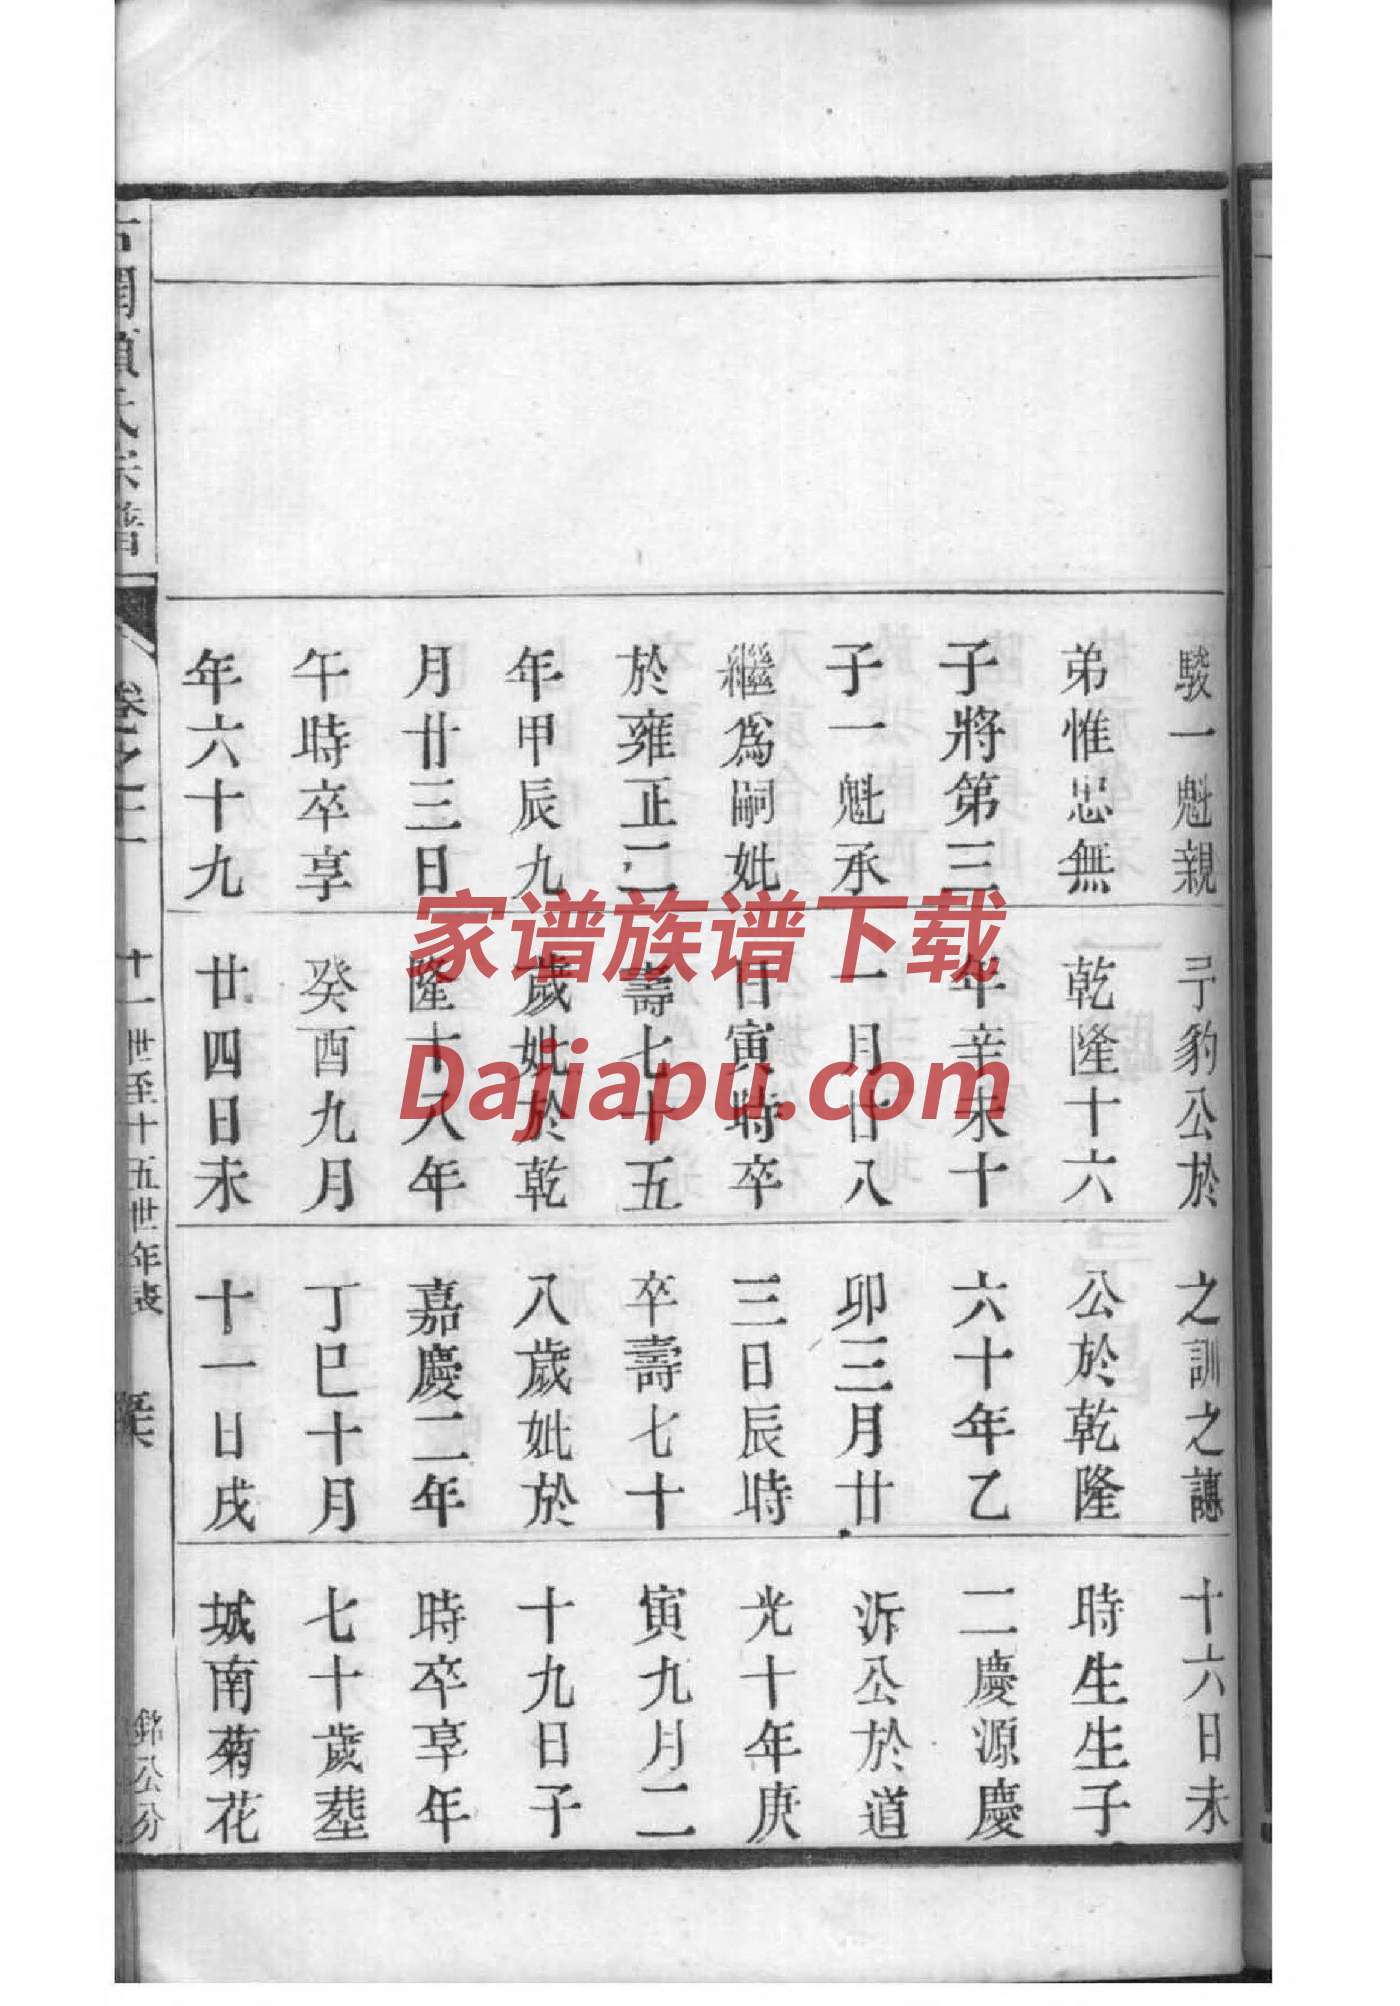 駿一魁親
弟惟忠無
子將第三
子一魁承
繼為嗣妣
於雍正二
年甲辰九
月廿三日
午時卒享
年六十九
子豹公於
乾隆十六
年辛未十
一月廿八
日寅時卒
壽七十五
歲妣於乾
隆十八年
癸酉九月
廿四日未
之訓之譓
公於乾隆
六十年乙
卯三月廿
三日辰時
卒壽七十
八歲妣於
嘉慶二年
丁巳十月
十一日戌
十六日未
時生生子
二慶源慶
泝公於道
光十年庚
寅九月二
十九日子
時卒享年
七十歲塟
城南菊花
氏宗譜
卷之十一
十一世至十五世年表
銘公分
家谱族谱下载
Dajiapu.com